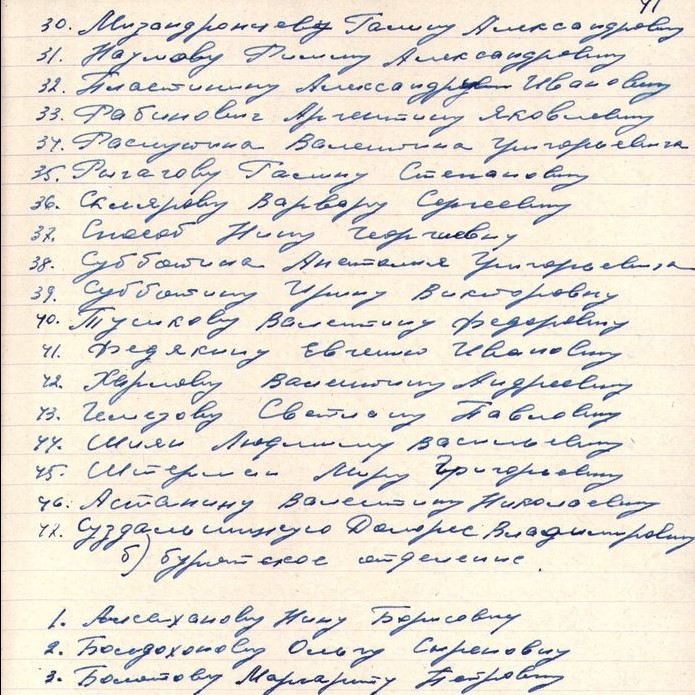 41
30. Мизандронцеву Галину Александровну
31. Наумову Римму Александровну
32. Пластинину Александру Ивановну
33. Рабинович Аргентину Яковлевну
34. Распутина Валентина Григорьевича
35. Рычагову Галину Степановну
36. Склярову Варвару Сергеевну
37. Способ Нину Георгиевну
38. Субботина Анатолия Григорьевича
39. Субботину Ирину Викторовну
40. Тупикову Валентину Федоровну
41. Федякину Евгению Ивановну
42. Харлову Валентину Андреевну
43. Светлану Павловну
44. Шиян Людмилу Васильевну
45. Штерман Миру Григорьевну
46. Астанину Валентину Николаевну
47. Суздальницкую Долорес Владимировну
б) бурятское отделение.
1. Нину Борисовну
2. Болдохонову Ольгу Сыреновну
3. Болотову Маргариту Петровну